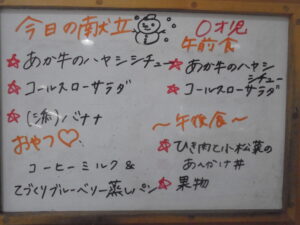 今日の献立
☆あか牛のハヤシシチュー
☆コールスローサラダ
☆(添)バナナ
おやつ♡
コーヒーミルク&
てづくりブルーベリー蒸しパン
0才児
午前食
☆あか牛のハヤシ
シチュー
☆コールスローサラダ
〜午後食〜
☆ひき肉と小松菜の
あんかけ丼
☆果物